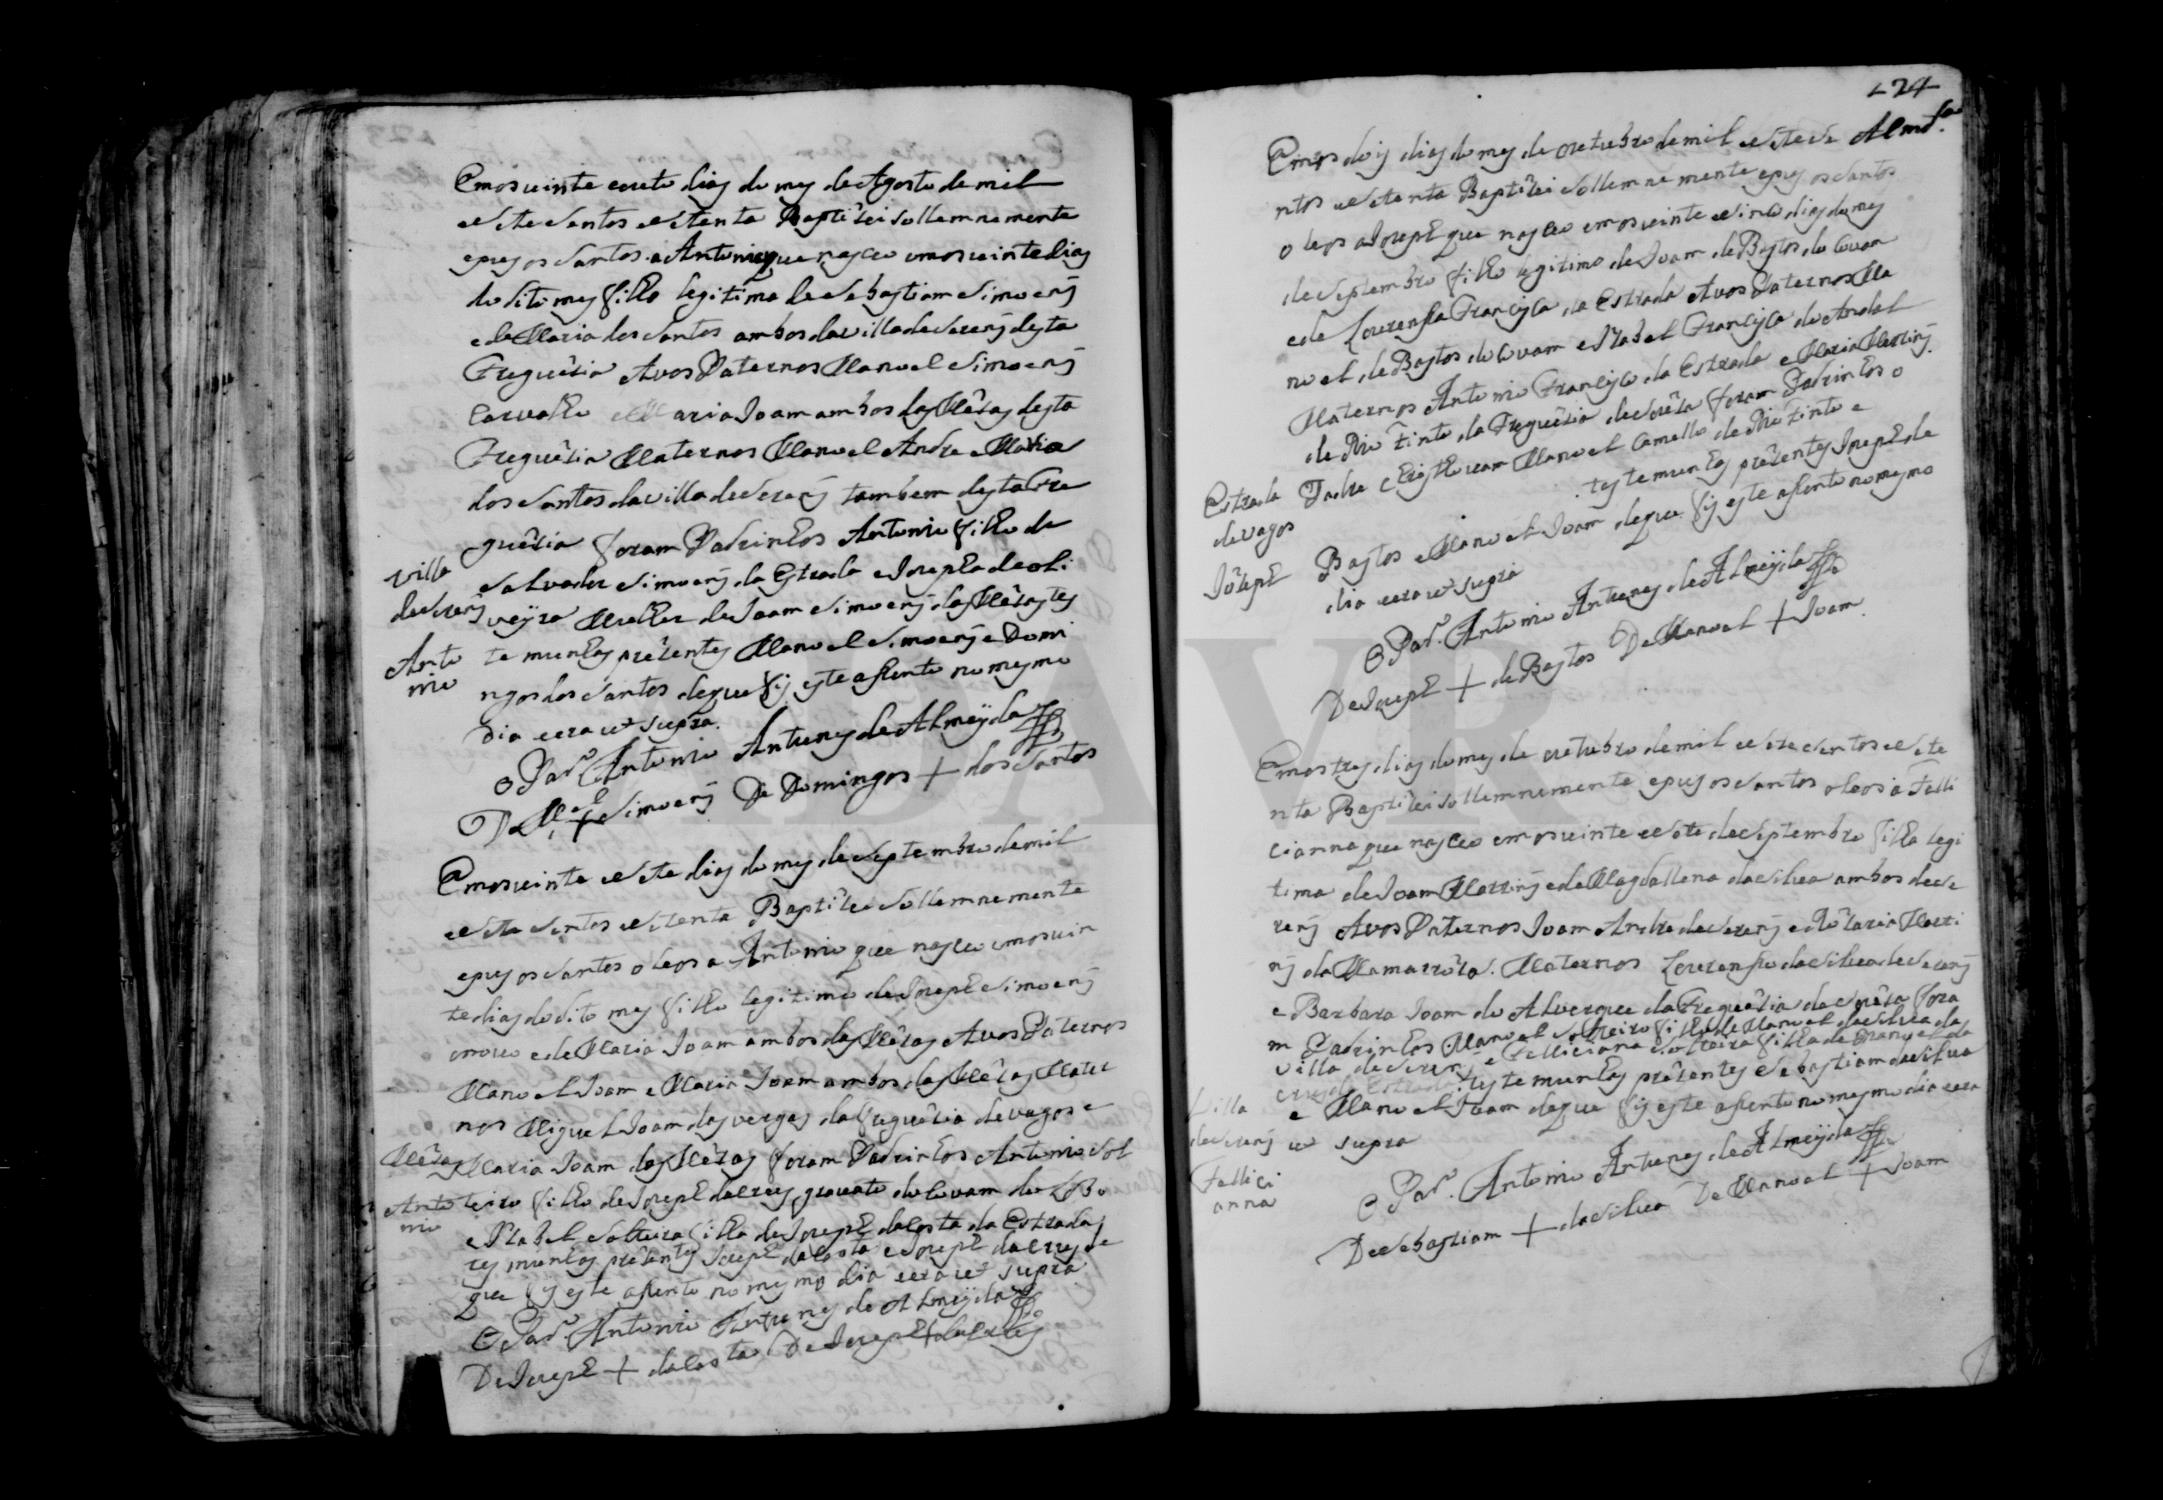 Emos vinte e outo dias do mes de Agosto de mil
e sete sentos e setenta Baptizei sollemnemente
e pus os santos a Antonio que nasceo emos vinte dias
do dito mes filho legitimo de Sebastiam Simoens
e de Maria dos Santos ambos da villa de Sorens desta
Freguezia Avos Paternos Manoel Simoens
Carvalho e Maria Joam ambos das Mezas desta
Freguezia Maternos Manoel Andre e Maria
dos Santos da villa de Sorens tambem desta Fre
guezia foram Padrinhos Antonio filho de
Salvador Simoens da Estrada e Josepha de Oli
veyra Molher de Joam Simoens das Mezas tes
temunhas prezentes Manoel Simoens e Domi
ngos dos Santos de que fis este asento no mesmo
dia e era ut supra
villa
de Sorens
Anto
nio
O Par.^e Antonio Antunes de Almeyda
De M.^el + Simoens De Domingos + dos Santos
Emos vinte e sete dias do mes de Septembro de mil
e sete sentos e setenta Baptizei sollemnemente
e pus os santos oleos a Antonio que nasceo emos vin
te dias do dito mes filho legitimo de Joseph Simoens
e de Maria Joam ambos das Mezas Avos Paternos
Manoel Joam e Maria Joam ambos das Mezas Mater
nos Miguel Joam das vergas da freguezia de vagos e
Maria Joam das Mezas foram Padrinhos Antonio sol
teiro filho de Joseph da crus gravato do Covam do Lobo
e Izabel solteira filha de Joseph da Costa da Estrada
tes munhas prezentes Joseph da Costa e Joseph da crus de
que fis este asento no mesmo dia e era ut supra
Mezas
Anto
nio
O Par.^e Antonio Antunes de Almeyda
De Joseph + da Costa De Joseph + da crus
274
Almd.^a
Emos dois dias do mes de outubro de mil e sete se
ntos e setenta Baptizei sollemnemente e pus os santos
oleos a Joseph que nasceo emos vinte e sinco dias do mes
de Septembro filho legitimo de Joam de Bastos do Covam
e de Lourensa Francisca da Estrada Avos Paternos Ma
noel de Bastos do Covam e Izabel Francisca do Andal
Maternos Antonio Francisco da Estrada e Maria Martins
de Rio tinto da Freguezia de Soza foram Padrinhos o
Padre Christovam Manoel Camello de Rio tinto e
testemunhas prezentes Joseph de
Bastos e Manoel Joam de que fis este asento no mesmo
dia e era ut supra
Estrada
de vagos
Jozeph
O Par.^e Antonio Antunes de Almeyda
De Joseph + de Bastos De Manoel + Joam
Emos tres dias do mes de outubro de mil e sete sentos e sete
nta Baptizei sollemnemente e pus os santos oleos a Felli
cianna que nasceo emos vinte e sete de Septembro filha legi
tima de Joam Martins e de Magdallena da Silva ambos de So
rens Avos Paternos Joam Andre de Sorens e Rozaria Marti
ns da Mamarroza. Maternos Lourenso da Silva de Sorens
e Barbara Joam do Alvergue da Freguezia de Soza fora
m Padrinhos Manoel solteiro filho de Manoel da Silva da
villa de Sorens e Felliciana solteira filha de Manoel da
crus da Estrada testemunhas prezentes Sebastiam da Silva
e Manoel Joam de que fis este asento no mesmo dia e era
ut supra
villa
de Sorens
Fellici
anna
O Par.^e Antonio Antunes de Almeyda
De Sebastiam + da Silva De Manoel + Joam
AVR